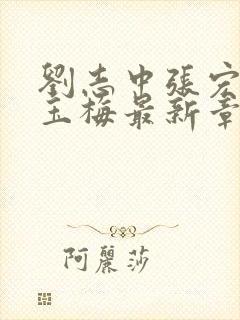 劉志中張宏
玉梅最新章
阿麗莎